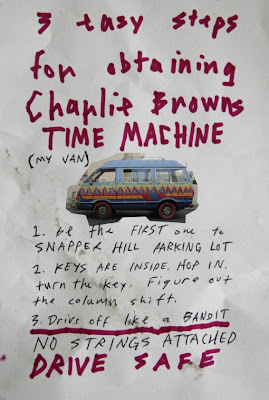 3 easy steps
for obtaining
Charlie Browns
TIME MACHINE
(MY VAN)
1. be the FIRST one to
SNAPPER HILL PARKING LOT
2. KEYS ARE INSIDE. HOP IN.
turn the key. Figure out
the column shift.
3. Drive off like a BANDIT
NO STRINGS ATTACHED
DRIVE SAFE